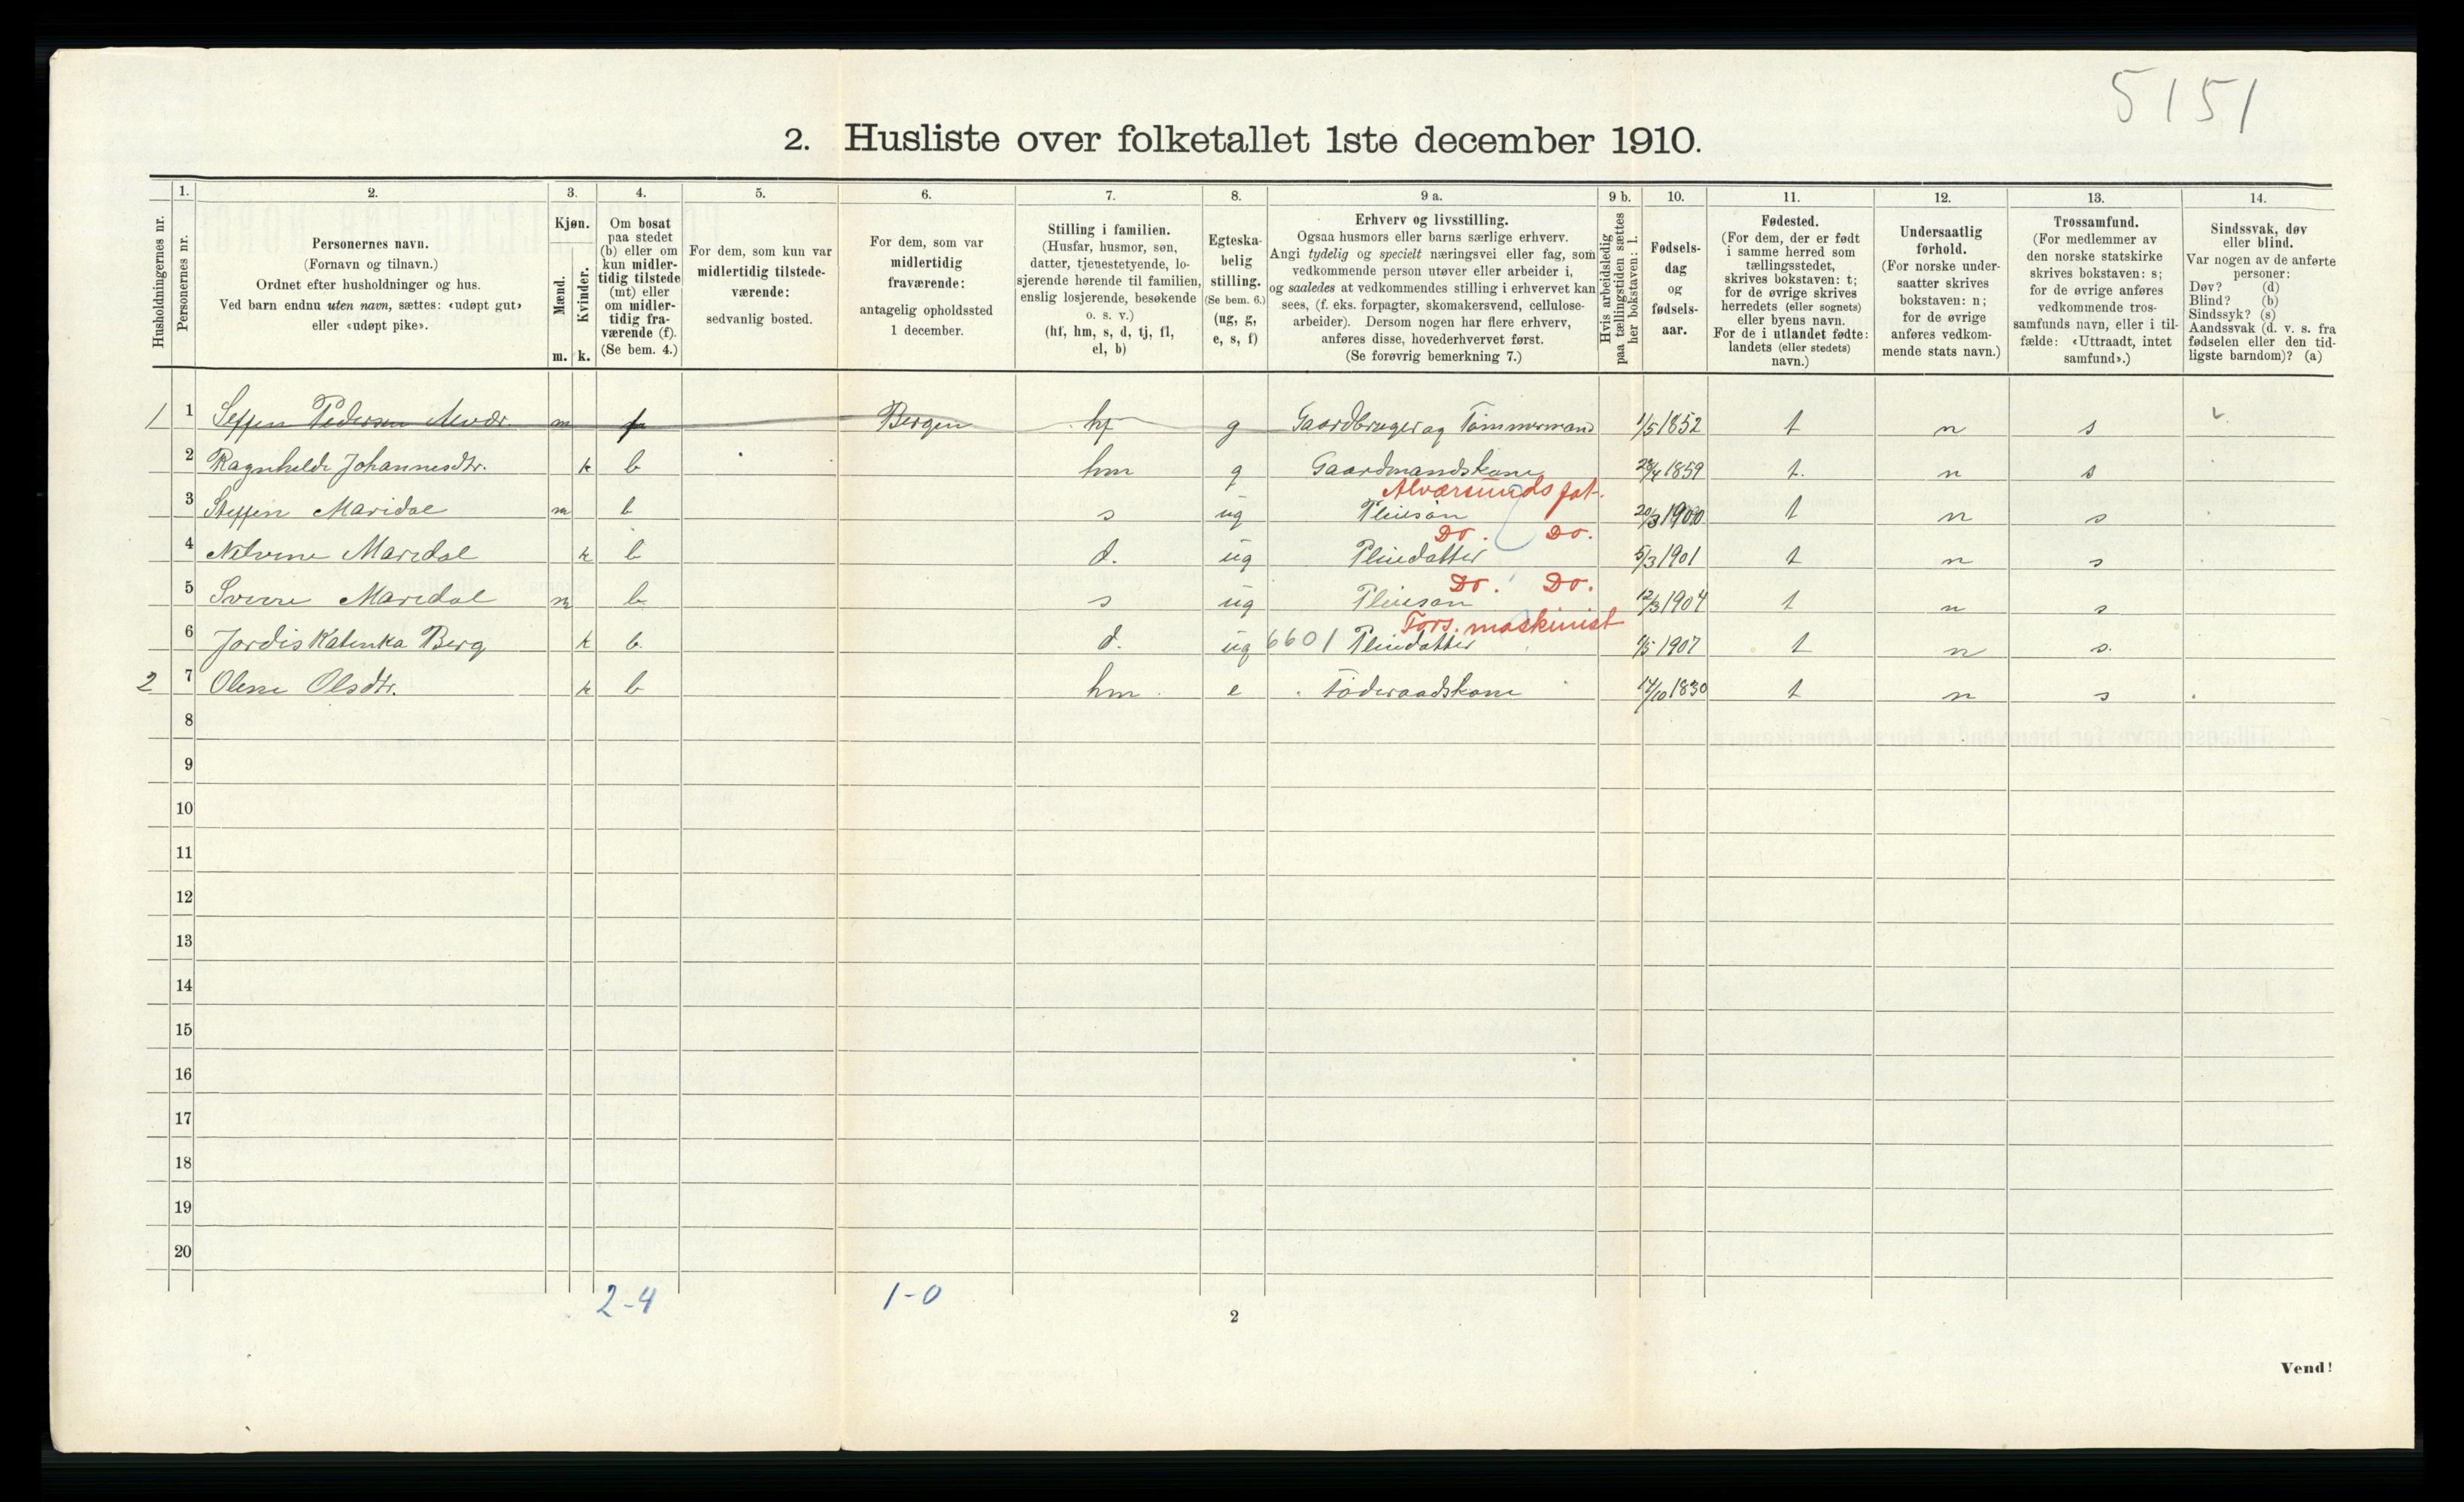 5151
2. Husliste over folketallet 1ste december 1910.
Husholdningernes nr.
1.
Personernes nr.
2.
Personernes navn.
(Fornavn og tilnavn.)
Ordnet efter husholdninger og hus.
Ved barn endnu uten navn, sættes: «udøpt gut»
eller «udøpt pike».
3.
Kjøn.
Mænd.
Kvinder.
m. k.
4.
Om bosat
paa stedet
(b) eller om
kun midler-
tidig tilstede
(mt) eller
om midler-
tidig fra-
værende (f).
(Se bem. 4.)
5.
For dem, som kun var
midlertidig tilstede-
værende:
sedvanlig bosted.
6.
For dem, som var
midlertidig
fraværende:
antagelig opholdssted
1 december.
7.
Stilling i familien.
(Husfar, husmor, søn,
datter, tjenestetyende, lo-
sjerende hørende til familien,
enslig losjerende, besøkende
o. s. v.)
(hf, hm, s, d, tj, fl,
el, b)
8.
Egteska-
belig
stilling.
(Se bem. 6.)
(ug, g,
e, s, f)
9 a.
Erhverv og livsstilling.
Ogsaa husmors eller barns særlige erhverv.
Angi tydelig og specielt næringsvei eller fag, som
vedkommende person utøver eller arbeider i,
og saaledes at vedkommendes stilling i erhvervet kan
sees, (f. eks. forpagter, skomakersvend, cellulose-
arbeider). Dersom nogen har flere erhverv,
anføres disse, hovederhvervet først.
(Se forøvrig bemerkning 7.)
9 b.
Hvis arbeidsledig
paa tællingstiden sættes
her bokstaven: l.
10.
Fødsels-
dag
og
fødsels-
aar.
11.
Fødested.
(For dem, der er født
i samme herred som
tællingsstedet,
skrives bokstaven: t;
for de øvrige skrives
herredets (eller sognets)
eller byens navn.
For de i utlandet fødte:
landets (eller stedets)
navn.)
12.
Undersaatlig
forhold.
(For norske under-
saatter skrives
bokstaven: n;
for de øvrige
anføres vedkom-
mende stats navn.)
13.
Trossamfund.
(For medlemmer av
den norske statskirke
skrives bokstaven: s;
for de øvrige anføres
vedkommende tros-
samfunds navn, eller i til-
fælde: «Uttraadt, intet
samfund».)
14.
Sindssvak, døv
eller blind.
Var nogen av de anførte
personer:
Døv? (d)
Blind? (b)
Sindssyk? (s)
Aandssvak (d. v. s. fra
fødselen eller den tid-
ligste barndom)? (a)
1 1 Seffen Pedersen m f Bergen hf g Gaardbruger og Tømmermand 1/5 1852 t n s
2 Ragnhilde Johannesdtr. k b hm g Gaardmandskone 28/4 1859 t. n s
Alværsunds fat.
3 Steffen Maridal m b s ug Pleiesøn 20/3 1900 t n s
Do. Do.
4 Nelvine Maridal k b d. ug Pleiedatter 5/3 1901 t n s
Do. Do.
5 Sverre Maridal m b s ug Pleiesøn 12/3 1904 t n s
Fors. maskinist
6 Jordis Katinka Berg k b. d. ug 6601 Pleiedatter 1/5 1907 t n s.
2 7 Olene Olsdtr. k b hm e Føderaadskone 14/10 1830 t n s
8
9
10
11
12
13
14
15
16
17
18
19
20
2-4 1-0
2
Vend!